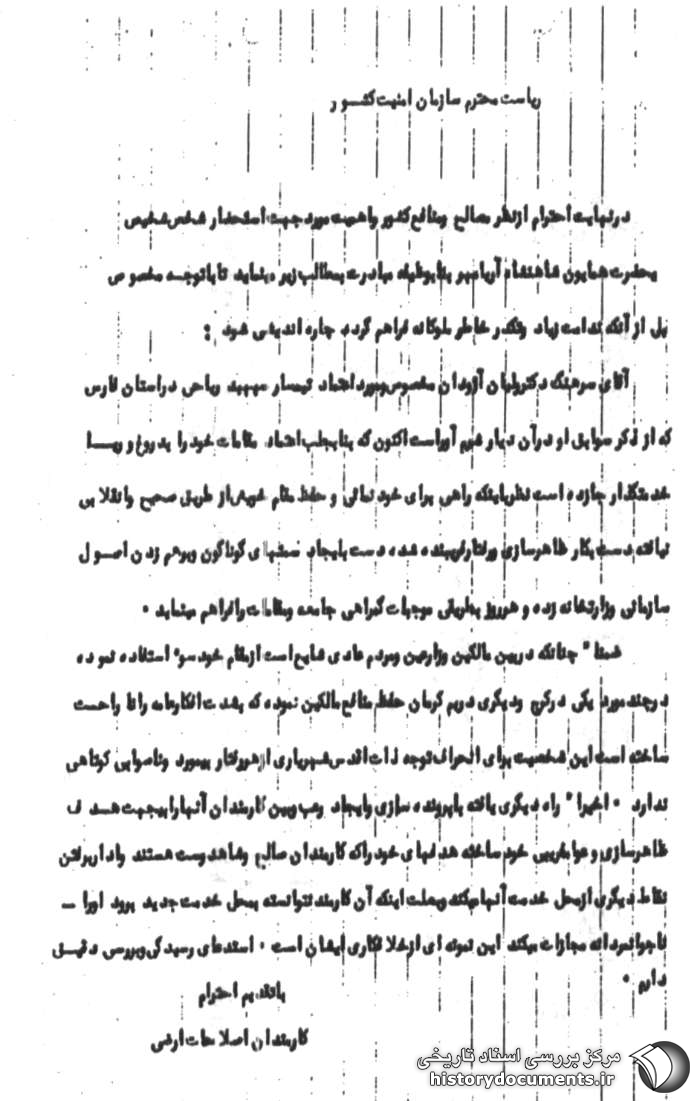 ریاست محترم سازمان امنیت کشور
در نهایت احترام از نظر مصالح و منافع کشور و اهمیت مورد جهت استحضار شخص شخیص
یحضرت همایون شاهنشاه آریامهر بنا بوظیفه مبادرت بمطالب زیر مینماید تا با توجه مخصوص
بل از آنکه ندامت زیاد و تکدر خاطر ملوکانه فراهم گردد چاره اندیشی شود :
آقای سرهنگ دکتر ولیان آزودان مخصوص و مورد اعتماد تیمسار سپهبد ریاحی در استان فارس
که از ذکر سوابق او در آن دیار شرم آور است اکنون که بنا بجلب اعتماد مقامات خود را بدروغ و ریا
خدمتگذار جا زده است نظر باینکه راهی برای خود نمائی و حفظ مقام خویش از طریق صحیح و انقلابی
نیافته دست بکار ظاهرسازی و رفتار فریبنده شده دست بایجاد سمتهای گوناگون و برهم زدن اصول
سازمانی وزارتخانه زده و هر روز بطریقی موجبات گمراهی جامعه و مقامات را فراهم مینماید .
ضمنا" چنانکه در بین مالکین و زارعین و مردم عادی شایع است از مقام خود سوء استفاده نموده
در چند مورد یکی در کرج و دیگری در بم کرمان حفظ منافع مالکین نموده که بشدت افکار عامه را ناراحت
ساخته است این شخصیت برای انحراف توجه ذات اقدس شهریاری از هر رفتار بیمورد و ناصوابی کوتاهی
ندارد . اخیرا" راه دیگری یافته با پرونده سازی و ایجاد رعب و بین کارمندان آنها را بیجهت هدف
ظاهرسازی و عوامفریبی خود ساخته هدفهای خود را که کارمندان صالح و شاهدوست هستند وادار برفتن
نقاط دیگری از محل خدمت آنها میکند و بعلت اینکه آن کارمند نتوانسته بمحل خدمت جدید برود او را ــ
ناجوانمردانه مجازات میکند این نمونه ای از خلافکاری ایشان است . استدعای رسیدگی و بررسی دقیق
دارم .
با تقدیم احترام
کارمندان اصلاحات ارضی
مرکز بررسی اسناد تاریخی
historydocuments.ir